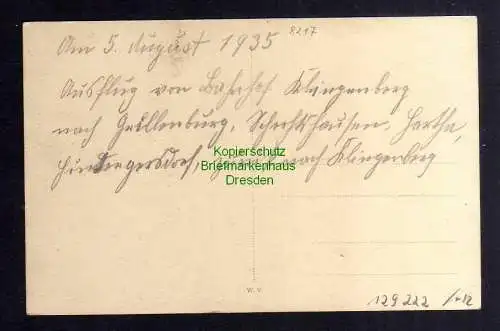 Am 5. August 1935
8217
Ausflug von Bahnhof Klingenberg
nach Grillenburg, Spechtshausen, Hartha,
Hindergersdorf, zurück nach Klingenberg
Kopierschutz
Briefmarkenhaus
Dresden
W. V.
129222 /+12